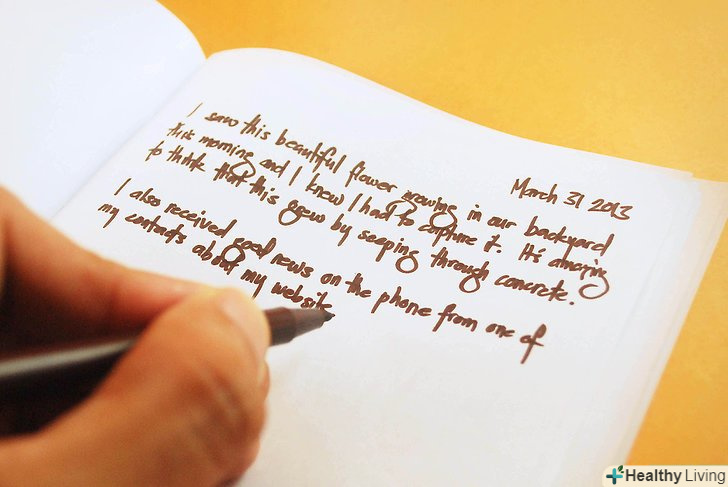 March 31 2013
I saw this beautiful flower growing in our backyard
this morning and I knew I had to capture it. It's amazing
to think that this grew by seeping through concrete.
I also received good news on the phone from one of
my contacts about my website
Healthy Living